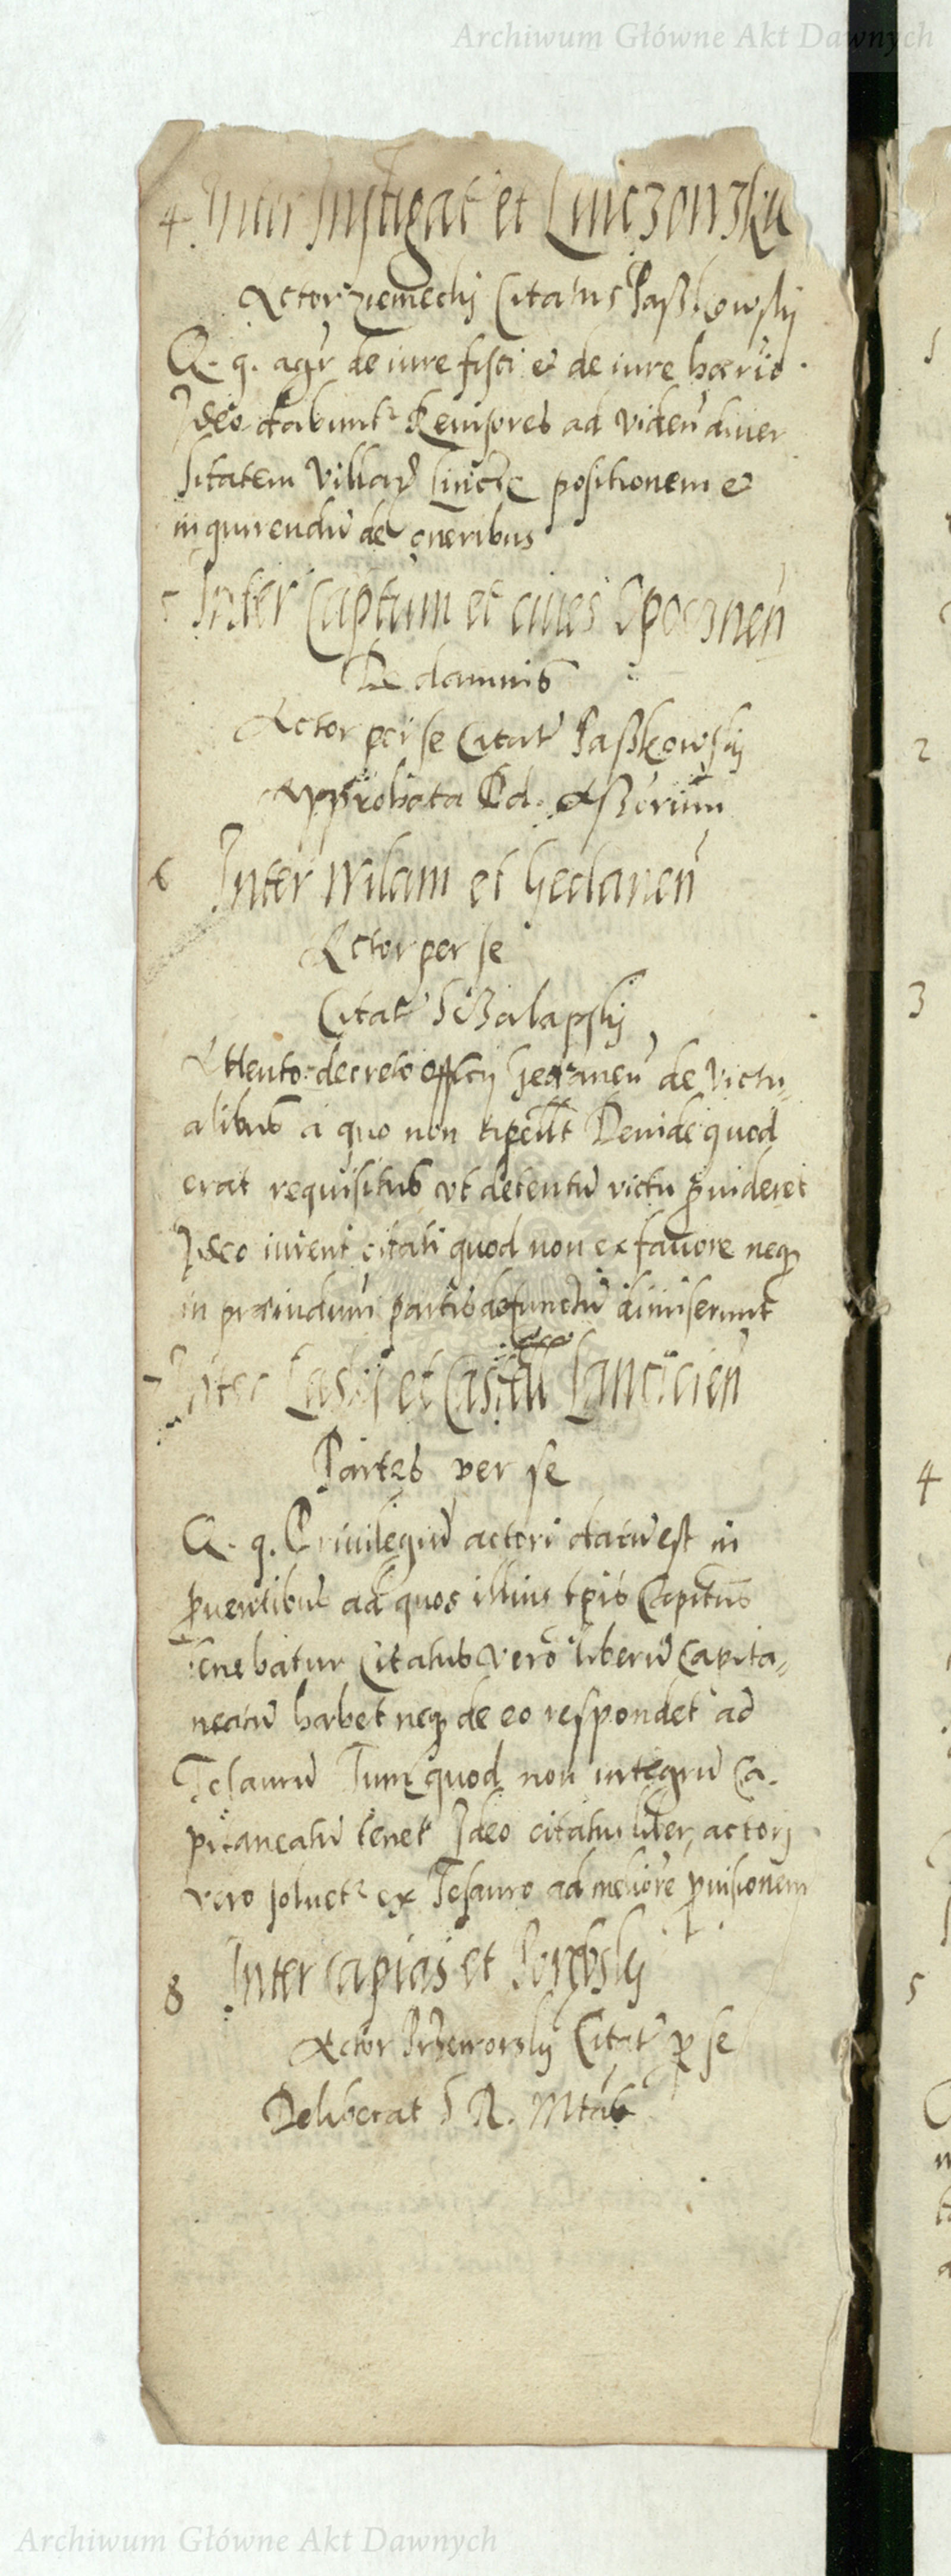 Archiwum Główne Akt Dawnych
4. Inter Instigat et
Actor ziemechi Citatus Paßkowskij
Q. q. agr de iure fisci et de iure
Ideo dabuntr Reuisores ad viden diuer
sitatem Villar positionem et
inquirendu de oneribus
5 Inter Captum et ciues Opocznen
De damnis
Actor per se Citat Paßkowskij
Approbata
6 Inter Wilam et Gedanen
Actor per se
Citat
Attento decreto officij Gedanen de victu„
alibus a quo non Deinde quod
erat requisitus vt detentu victu puideret
Ideo iurent citati quod non ex fauore neq
in partis defunctu dimiserunt
7 Inter Laskj et Castell Lancicien
Partes per se
Q. q. Priuilegiu actori datu est in
puentibus ad quos illius tpis Capitus
tenebatur Citatus vero liberu Capita„
neatu habet neq de eo respondet ad
Tesauru Tum quod non integru Ca-
pitaneatu tenet Ideo citatus liber, actorj
vero soluetr ex Tesauro ad meliore puisionem
8 Inter capias et
Actor Citat p se
Deliberat S R. Mtas
5
2
3
4
5
Archiwum Główne Akt Dawnych